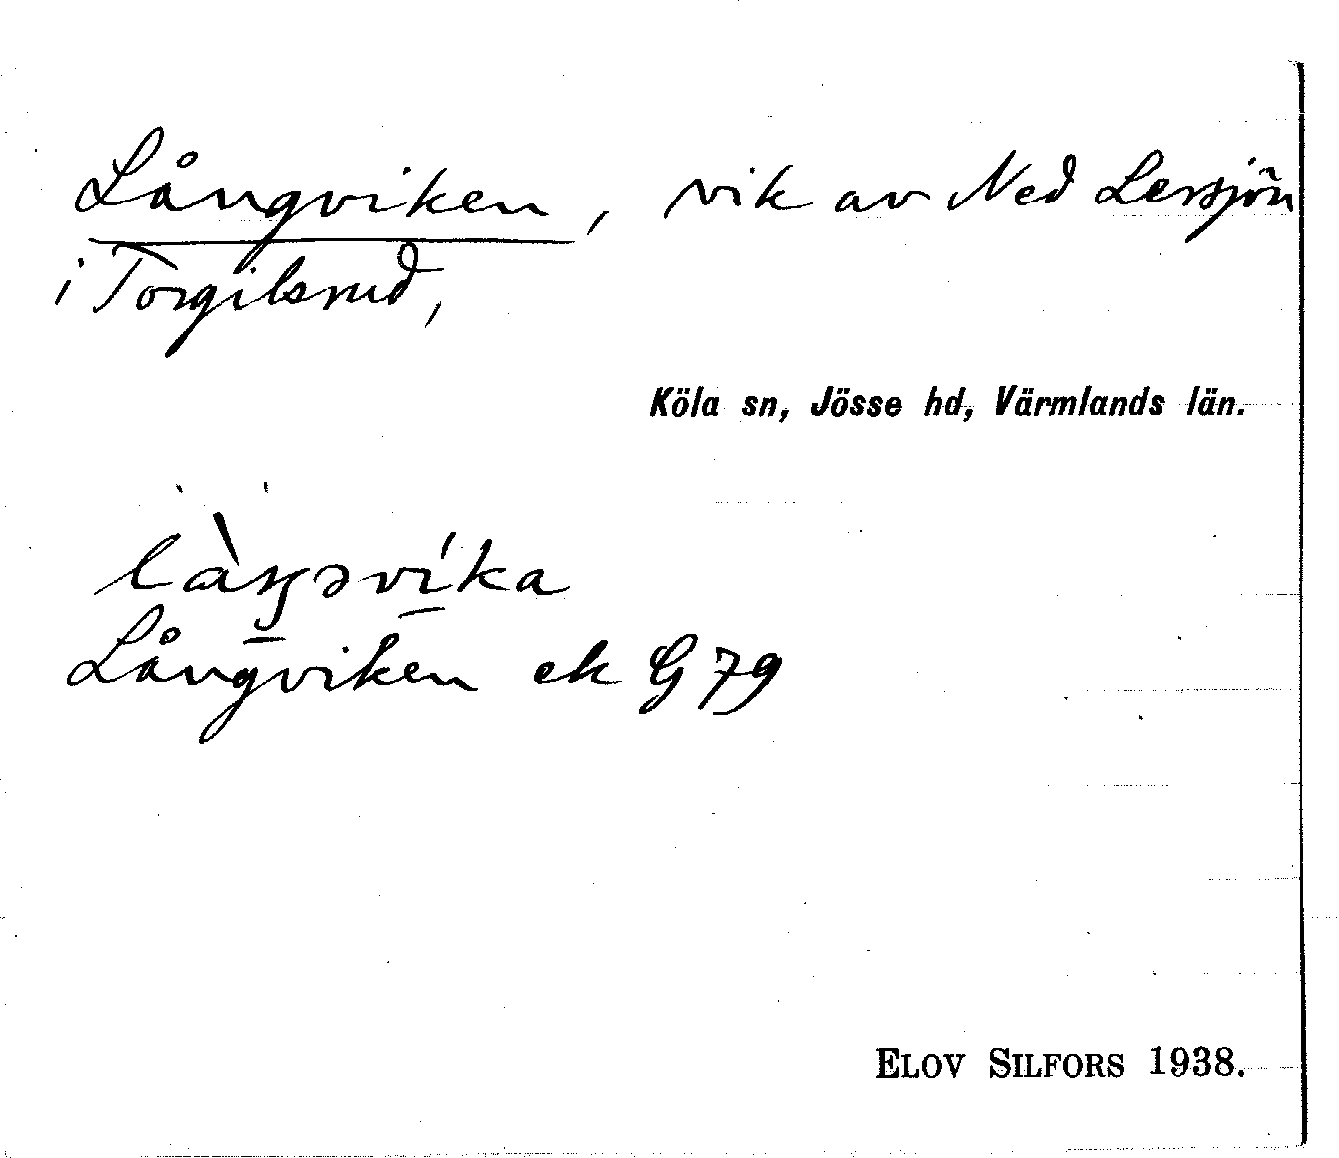 Långviken, vik av Ned Lersjön
i Torgilsrud,
Köla sn, Jösse hd, Värmlands län.
làŋəvíka
Långviken ek G 79
ELOV SILFORS 1938.